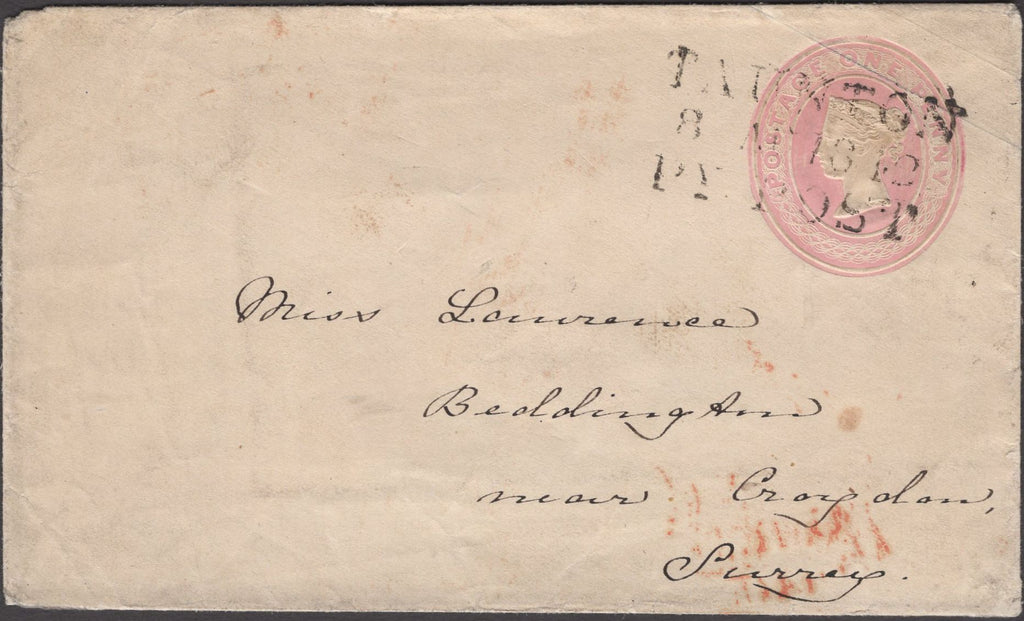 POSTAGE ONE PENNY
TAUNTON
8
PY POST
Miss Lawrence
Beddington
near Croydon,
Surrey.